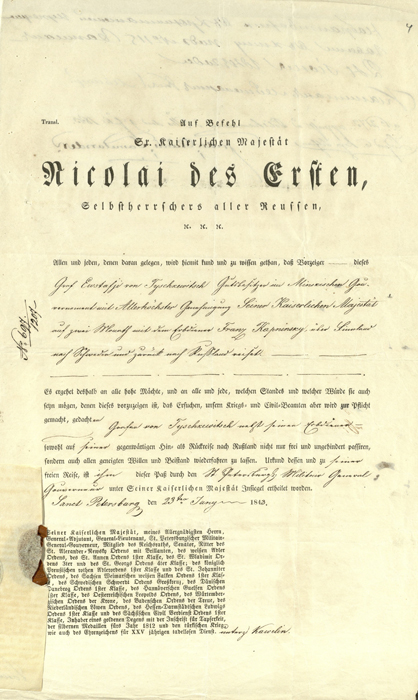 Transl.
Auf Befehl
Sr. Kaiserlichen Majestät
Nicolai des Ersten,
Selbstherrschers aller Reussen,
ꝛc. ꝛc. ꝛc.
Allen und jeden, denen daran gelegen, wird hiemit kund und zu wissen gethan, daß Vorzeiger dieses
Graf Eustafje von Tyschkewitsch Gutsbesitzer im Minskischen Gou-
vernement mit Allerhöchster Genehmigung Seiner Kaiserlichen Majestät
auf zwei Monath mit dem Erbdiener Franz über Finnland
nach Schweden und zurück nach Rußland reiset.
Es ergehet deshalb an alle hohe Mächte, und an alle und jede, welchen Standes und welcher Würde sie auch
seyn mögen, denen dieses vorzuzeigen ist, das Ersuchen, unsern Kriegs- und Civil-Beamten aber wird zur Pflicht
gemacht, gedachten Grafen von Tyschkewitsch nebst seinem Erbdiener
sowohl auf seiner gegenwärtigen Hin- als Rückreise nach Rußland nicht nur frei und ungehindert passiren,
sondern auch allen geneigten Willen und Beistand wiederfahren zu lassen. Urkund dessen und zu seiner
freien Reise, ist ihm dieser Paß durch den St. Petersburg. Militair General-
Gouverneur unter Seiner Kaiserlichen Majestät Insiegel ertheilet worden.
Sanct Petersburg den 23ten Juny 1843.
Seiner Kaiserlichen Majestät, meines Allergnädigsten Herrn,
General-Adjutant, General-Lieutenant, St. Petersburgischer Militair-
General-Gouverneur, Mitglied des Reichsraths, Senateur, Ritter des
St. Alexander-Newsky Ordens mit Brillanten, des weißen Adler
Ordens, des St. Annen Ordens 1ster Klasse, des St. Wladimir Or-
dens 2ter und des St. Georg Ordens 4ter Klasse, des Königlich
Preussischen rothen Adlerordens 1ster Klasse und des St. Johanniter
Ordens, des Sachsen Weimarschen weißen Falken Ordens 1ster Klas-
se, des Schwedischen Schwerdt Ordens Großkreuz, des Dänischen
Danebrog Ordens 1ster Klasse, des Hannöverschen Guelfen Ordens
1ster Klasse, des Oesterreichischen Leopolds Ordens, des Würtember-
gischen Ordens der Krone, des Badenschen Ordens der Treue, des
Niederländischen Löwen Ordens, des Hessen-Darmstädtischen Ludwigs
Ordens 1ster Klasse und des Sächsischen Civil Verdienst Ordens 1ster
Klasse, Inhaber eines goldenen Degens mit der Inschrift für Tapferkeit,
der silbernen Medaillen fürs Jahr 1812 und den türkischen Krieg,
wie auch des Ehrenzeichens für XXV jährigen tadellosen Dienst.